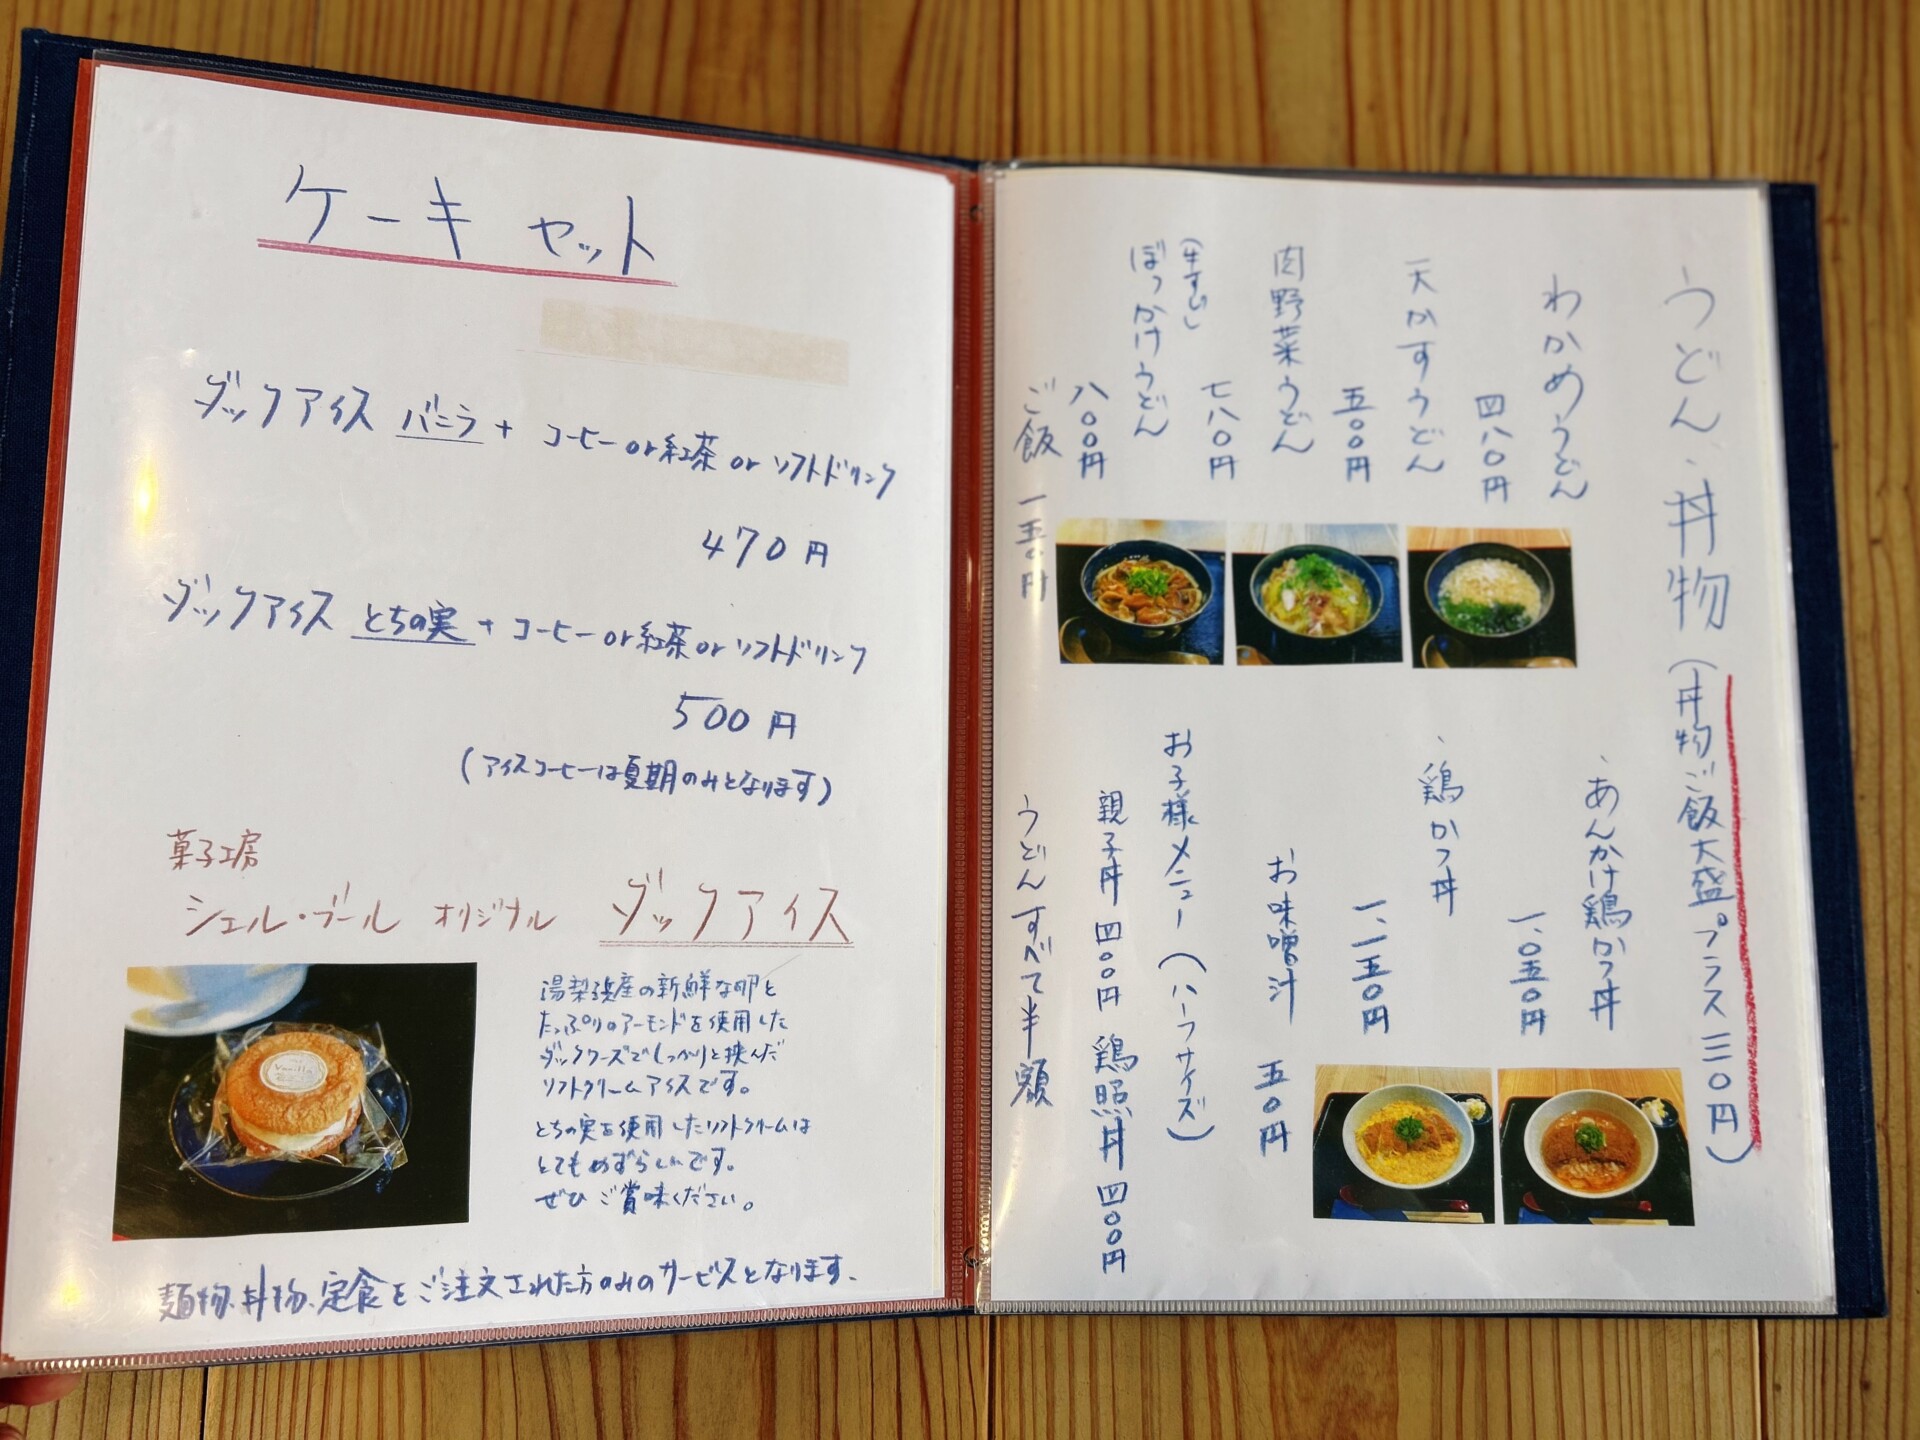 ケーキセット
ダックアイス バニラ + コーヒー or 紅茶 or ソフトドリンク
470円
ダックアイス とちの実 + コーヒー or 紅茶 or ソフトドリンク
500円
(アイスコーヒーは夏期のみとなります)
菓子工房
シェル・ブール オリジナル ダックアイス
Vanilla
湯梨浜産の新鮮な卵と
たっぷりのアーモンドを使用した
ダックワーズでしっかりと挟んだ
ソフトクリームアイスです。
とちの実を使用したソフトクリームは
とてもめずらしいです。
ぜひご賞味ください。
麺物、丼物、定食をご注文された方のみのサービスとなります、
うどん、丼物 (丼物ご飯大盛。プラス三〇円)
わかめうどん
四八〇円
天かすうどん
五〇〇円
肉野菜うどん
七八〇円
(牛すじ)
ぼっかけうどん
八〇〇円
ご飯 一五〇円
、あんかけ鶏かつ丼
一、〇五〇円
、鶏かつ丼
一、一五〇円
お味噌汁 五〇円
お子様メニュー (ハーフサイズ)
親子丼 四〇〇円 鶏照丼 四〇〇円
うどんすべて半額